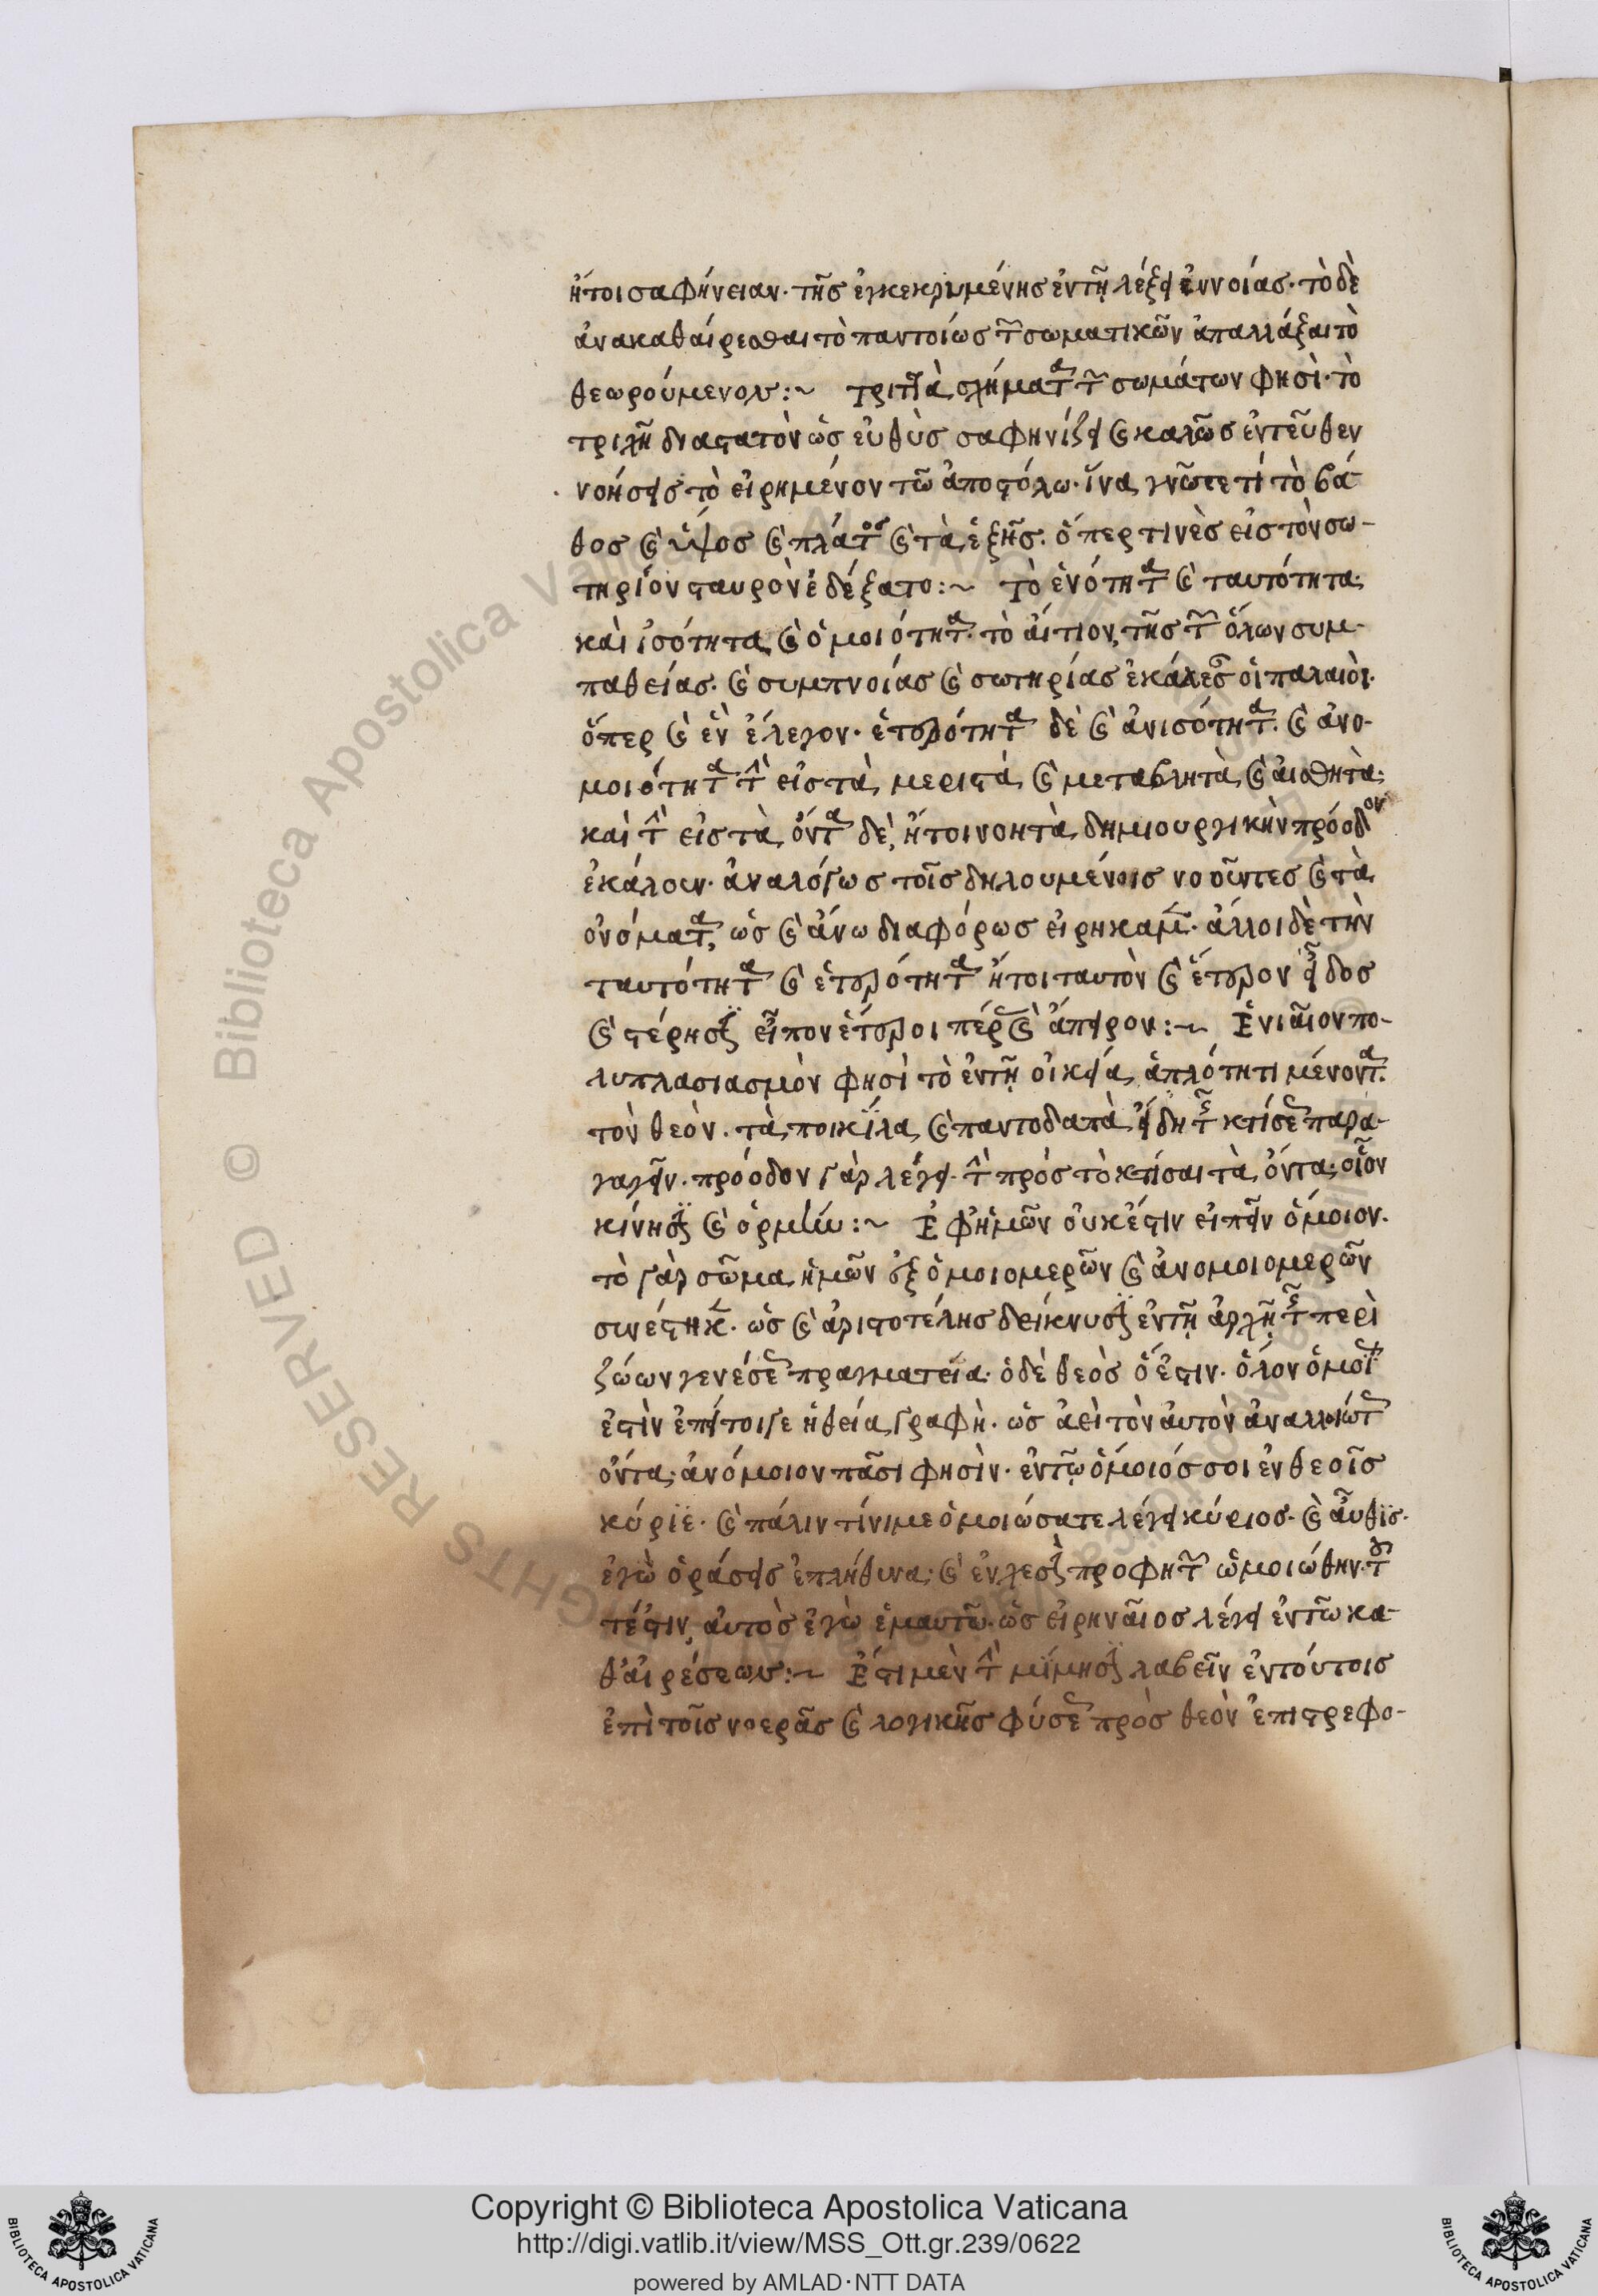 ἤτοι σαφήνειαν· τῆς ἐγκεκρυμμένης ἐν τῇ λέξει ἐννοίας· τὸ δὲ
ἀνακαθαίρεσθαι τὸ παντοίως τῶν σωματικῶν ἀπαλλάξαι τὸ
θεωρούμενον:~ τριττὰ σχήματα τῶν σωμάτων φησὶ· τὸ
τριχῇ διαστατὸν ὡς εὐθὺς σαφηνίζει καὶ καλῶς ἐντεῦθεν
νοήσεις τὸ εἰρημένον τῶ ἀποστόλω· ἵνα γνῶτε τί τὸ βά
θος καὶ ὕψος καὶ πλάτος καὶ τὰ ἑξῆς. ὅπερ τινὲς εἰς τὸν σω-
τηρίον σταυρὸν ἐδέξατο:~ τὸ ἑνότητα καὶ ταυτότητα
καὶ ἰσότητα καὶ ὁμοιότητα· τὸ αἴτιον τῆς τῶν ὅλων συμ-
παθείας· καὶ συμπνοίας καὶ σωτηρίας ἐκάλεσαν οἱ παλαιοὶ·
ὅπερ καὶ ἓν ἔλεγον· ἑτερότητα δὲ καὶ ἀνισότητα· καὶ ἀνο-
μοιότητα τὴν εἰς τὰ μεριστὰ καὶ μεταβλητὰ καὶ αἰσθητὰ·
καὶ τὴν εἰς τὰ ὄντα δὲ, ἤτοι νοητὰ δημιουργικὴν πρόοδον
ἐκάλουν· ἀναλόγως τοῖς δηλουμένοις νοοῦντες καὶ τὰ
ὀνόματα, ὡς καὶ ἄνω διαφόρως εἰρήκαμεν· ἄλλοι δὲ τὴν
ταυτότητα καὶ ἑτερότητα ἤτοι ταυτὸν καὶ ἕτερον εἶδος
καὶ στέρησιν εἶπον ἕτεροι πέρας καὶ ἄπειρον:~ Ἑνιαῖον πο-
λυπλασιασμὸν φησὶ τὸ ἐν τῇ οἰκείᾳ ἁπλότητι μένοντα
τὸν θεὸν· τὰ ποικίλα καὶ παντοδαπὰ εἴδη τῆς κτίσεως παρα-
γαγεῖν· πρόοδον γὰρ λέγει· τὴν πρὸς τὸ κτίσαι τὰ ὄντα· οἷον
κίνησιν καὶ ὁρμὴν:~ Ἐφ' ἡμῶν οὐκ ἔστιν εἰπεῖν ὅμοιον·
τὸ γὰρ σῶμα ἡμῶν ἐξ ὁμοιομερῶν καὶ ἀνομοιομερῶν
συνέστηκεν· ὡς καὶ ἀριστοτέλης δείκνυσιν ἐν τῇ ἀρχῇ τῆς περὶ
ζώων γενέσεως πραγματεία· ὁ δὲ θεὸς ὅ ἐστιν· ὅλον ὅμοιον
ἐστὶν ἐπεί τοι γε ἡ θεία γραφὴ· ὡς ἀεὶ τὸν αὐτὸν ἀναλλοιώτως
ὄντα· ἀνόμοιον πᾶσι φησὶν· ἐν τῷ ὅμοιός σοι ἐν θεοῖς
κύριε· καὶ πάλιν τίνι με ὁμοιώσατε λέγει κύριος· καὶ αὖθις·
ἐγὼ ὁράσεις ἐπλήθυνα· καὶ ἐν χερσὶν προφητῶν ὡμοιώθην· του
τέστιν, αὐτὸς ἐγὼ ἐμαυτῶ· ὡς εἰρηναῖος λέγει ἐν τῶ κα-
θ' αἱρέσεων:~ Ἔστι μὲν τὴν μίμησιν λαβεῖν ἐν τούτοις
ἐπὶ τοῖς νοερᾶς καὶ λογικῆς φύσεως πρὸς θεὸν ἐπιστρεφο-
Copyright © Biblioteca Apostolica Vaticana
http://digi.vatlib.it/view/MSS_Ott.gr.239/0622
powered by AMLAD·NTT DATA
BIBLIOTECA APOSTOLICA VATICANA
BIBLIOTECA APOSTOLICA VATICANA